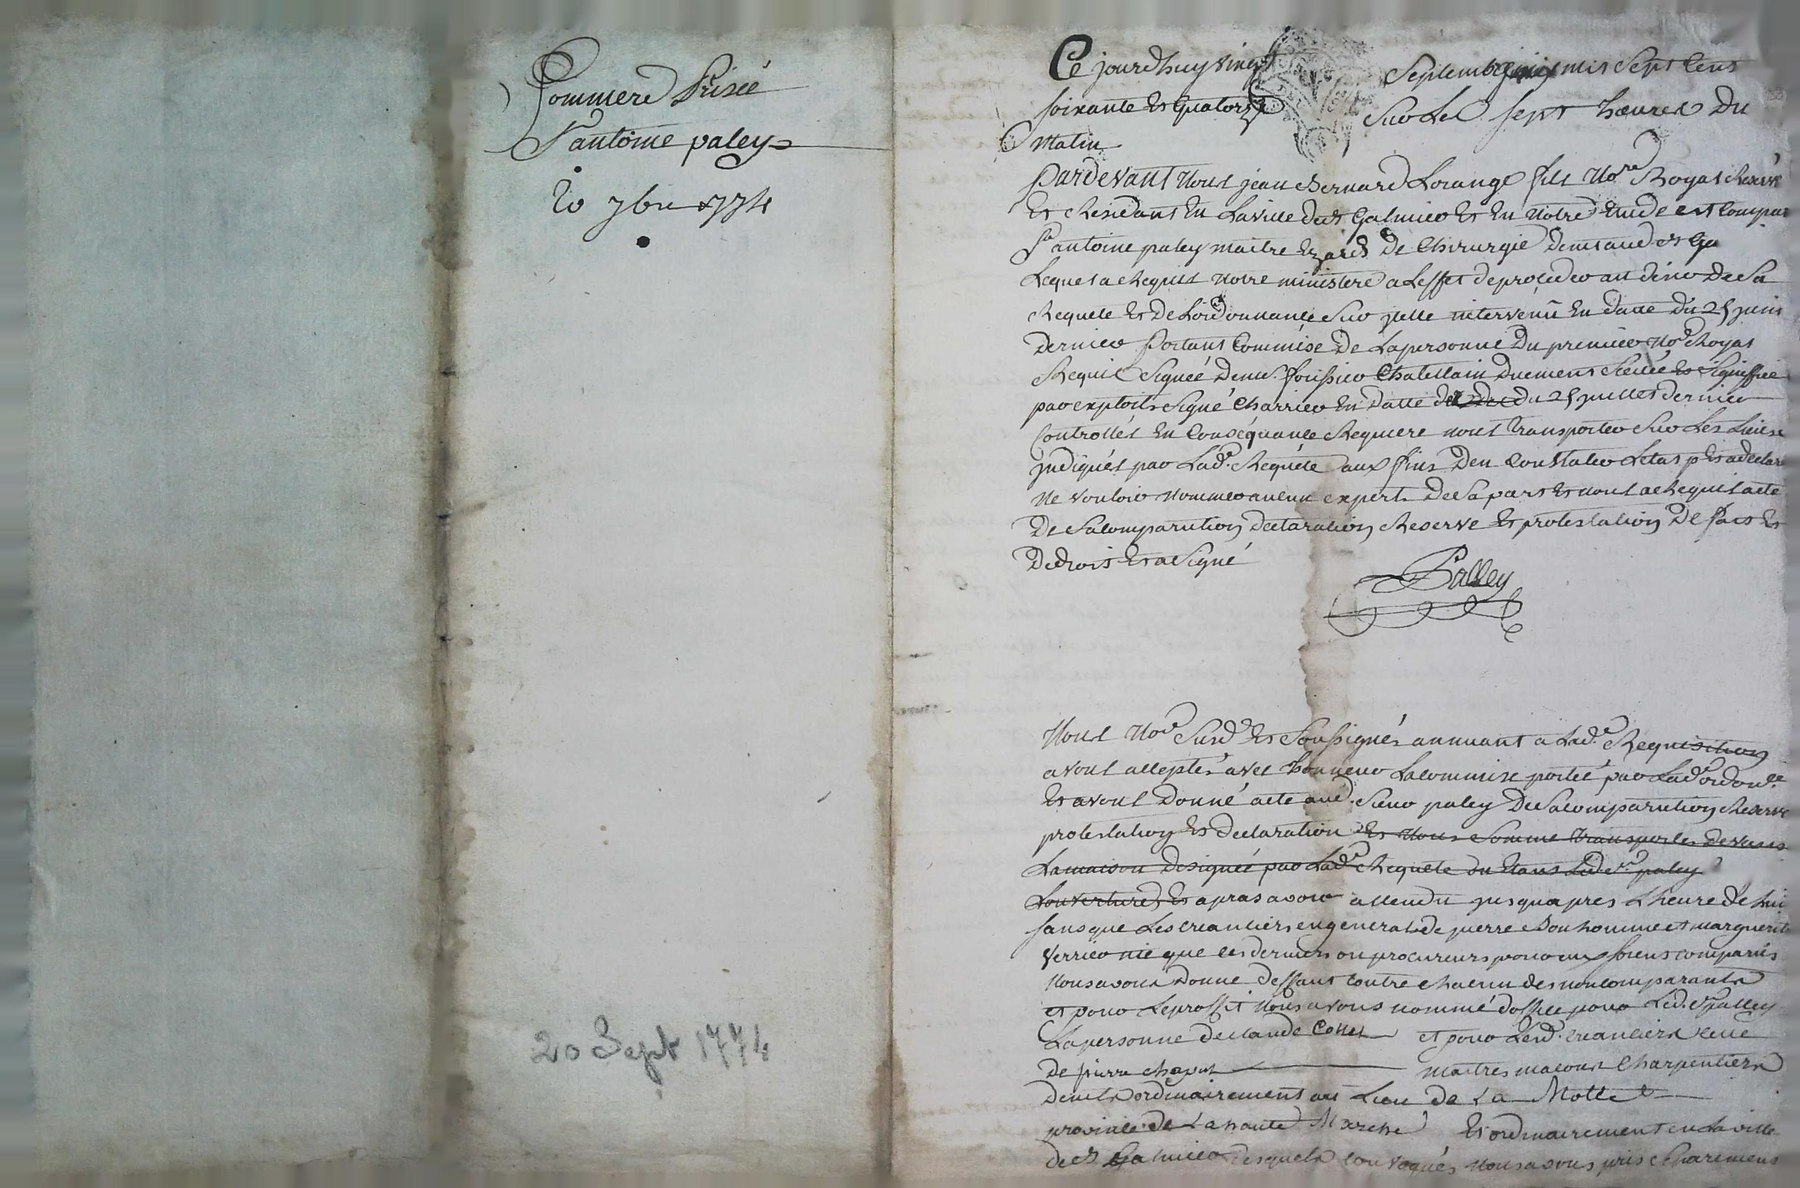 Sommere Prisée
Sr antoine paley
20 7bre 1774
20 Sept 1774
Ce jourdhuy vingt Septembre mil Sept Cent
soixante et quatorze Sur Les sept heures Du
Matin
Pardevant Nous jean Bernard Lorange fils Nore Royal Reservé
Et Residant En La ville de St Galmier Et En Notre Etude est Comparu
Sr antoine paley maitre Es arts De Chirurgie Demt aud. st Ga
Lequel a Requis Notre ministere a Leffet de proceder au desir De Sa
Requete Et De Lordonnance Sur jcelle intervenü En Datte Du 25 juin
Dernier Portant Commise De La personne Du premier Nore Royal
Requis Signée De mr. Chatellain Duement Scellée Et Signiffiée
par exploit Signé Charrier En Datte du 25 juillet dernier
Controllés En Conséquance Requiere nous transporter Sur Les Lieux
jndiqués par Lade. Requéte aux fins Den Constater Letat Et a declaré
Ne vouloir Nommer aucun expert De Sa part Et nous a Requis acte
De Sa Comparution declaration Reserve Et protestation De fait Et
De droit Et a Signé
Palley
Nous Nore Susd. Et Soussigné annuant a Lade. Requisition
avons accepté avec honneur La Commise portée par Lade ordonce
Et avons Donné acte aud. Sieur paley De Sa Comparution Reserve
protestation Et declaration Et Nous Somme transportés devant
La maison designée par Lade Requete ou Etant Led. Sr paley
Louverture Et apras avoir attendu jusquapres Lheure de
sans que Les creanciers en general de pierre Bonhomme et marguerite
Verrier nie que ces derniers ou procureurs pour eux soient comparus
Nous avons Donné deffaut contre chacun des non comparants
et pour Le proffit Nous avons nommé doffice pour Led. Sr palley
La personne de claude Collet et pour Lesd. creanciers celle
de pierre chaput maitres macons Charpentiers
Demt. ordinairement au Lieu de La Motte
province de La haute Marche Et ordinairement en La ville
de St Galmier Lesquels convoqués Nous avons pris Serement